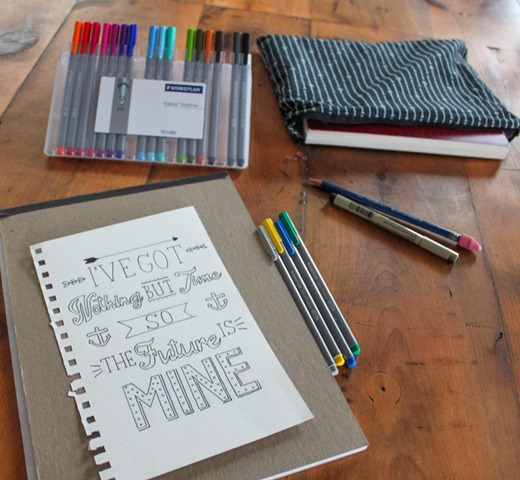 STAEDTLER
triplus fineliner
I'VE GOT
Nothing BUT Time
SO
THE Future IS
MINE